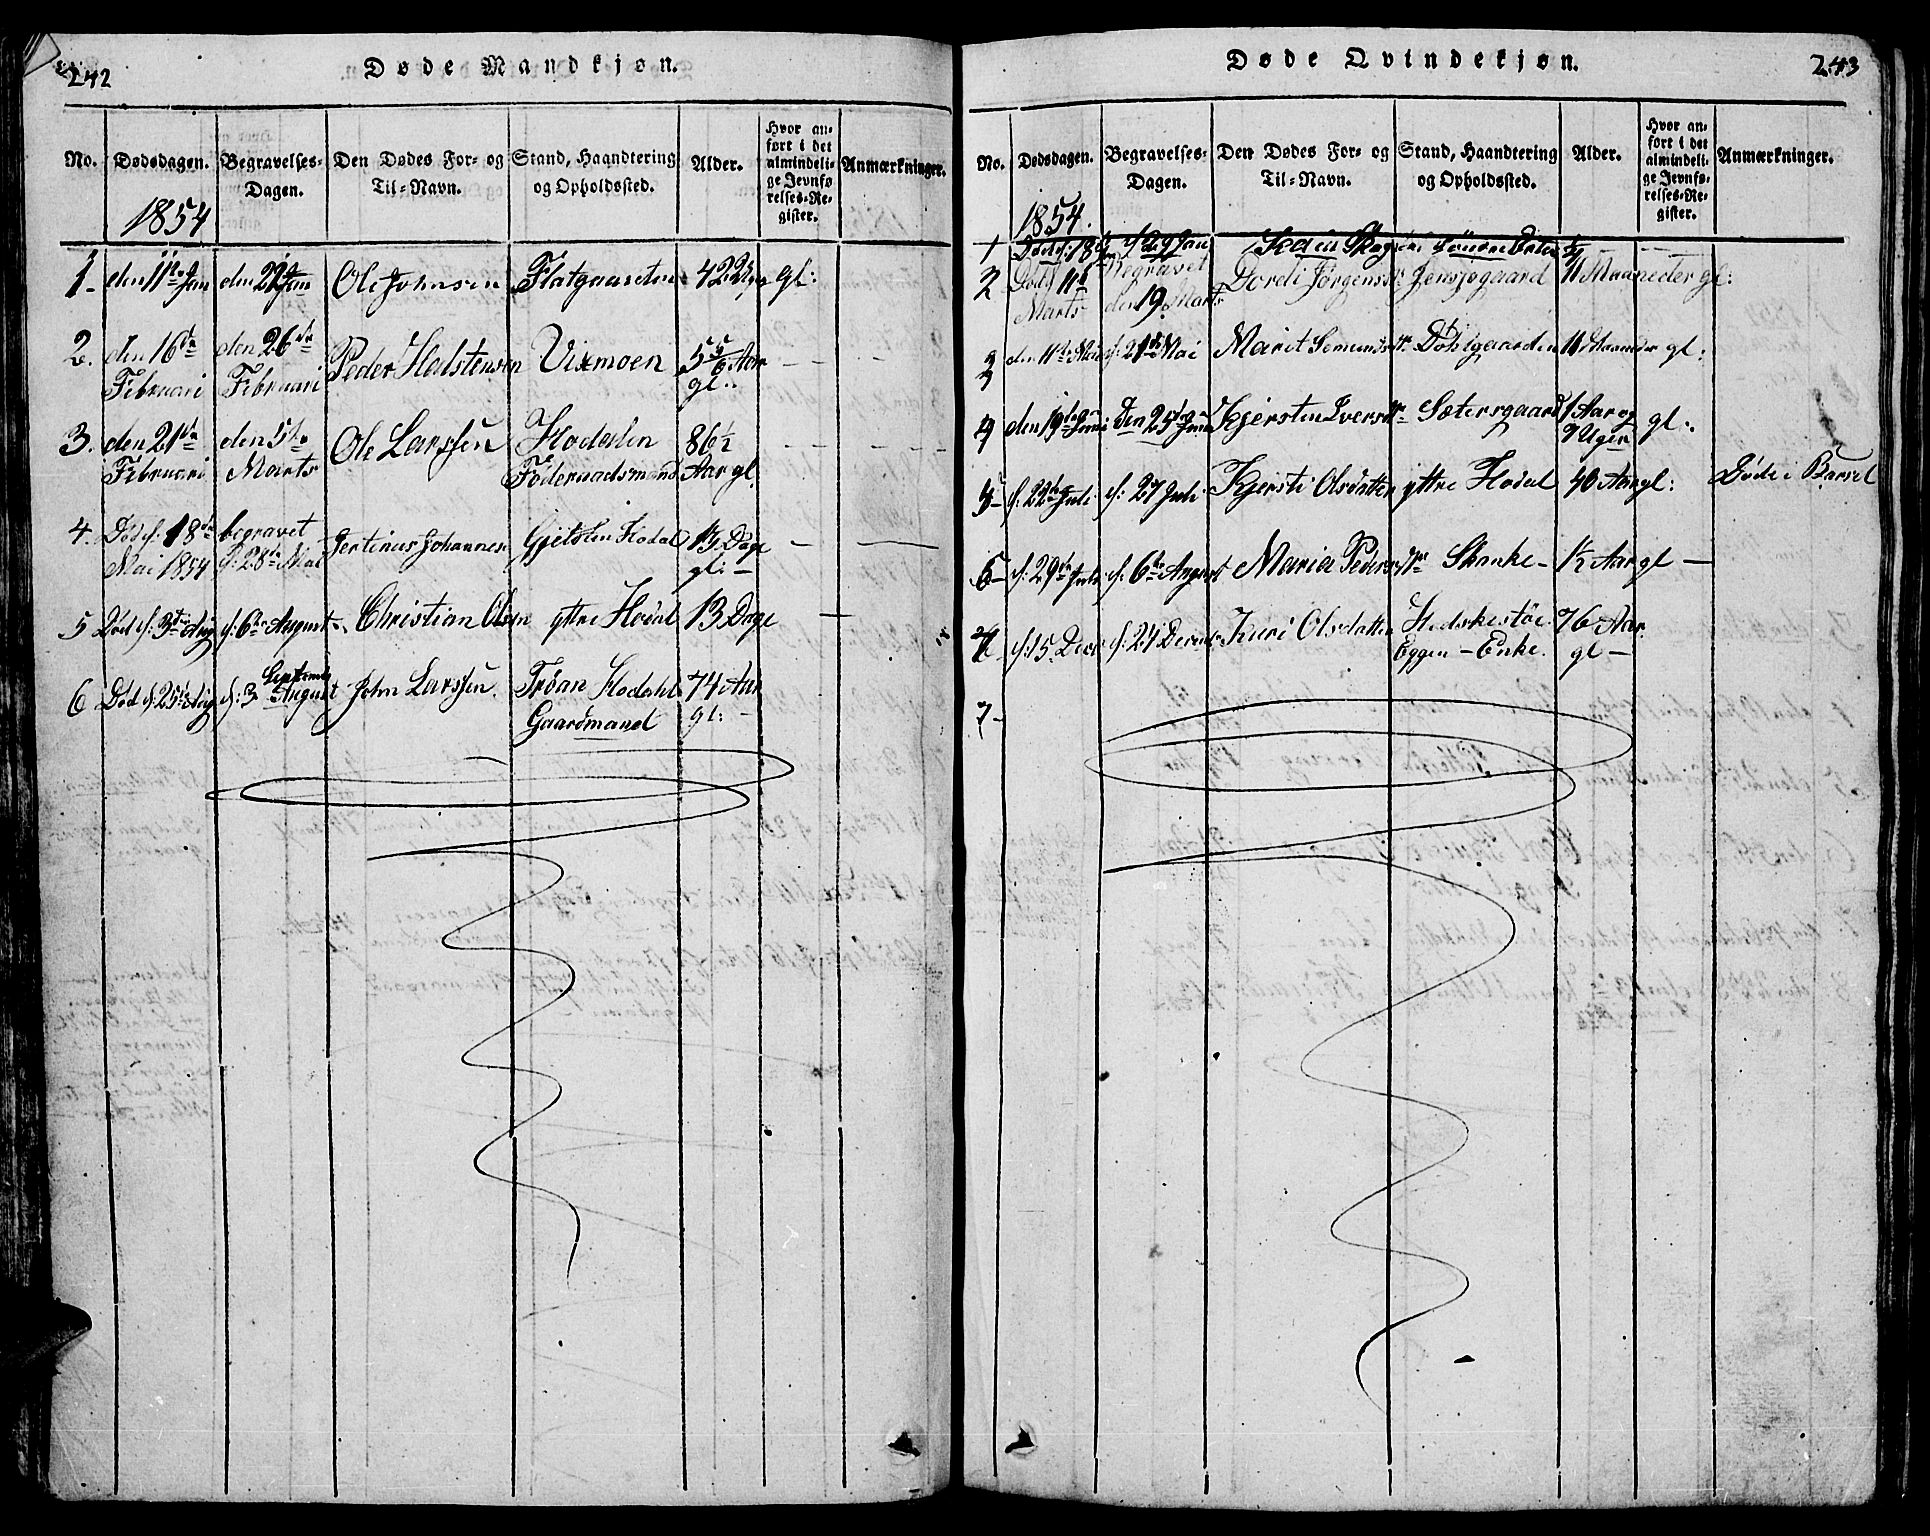 242
Døde Mandkjøn.
No.
Dødsdagen.
Begravelses-
Dagen.
Den Dødes For- og
Til-Navn.
Stand, Haandtering
og Opholdssted.
Alder.
Hvor an-
ført i det
almindeli-
ge Jevnfø-
relses-Re-
gister.
Anmærkninger.
1854
1- den 11te Jan den 29 Jan Ole Johnsen 42 gl:
2. den 16de den 26de Peder Vixmoen 5 5/6 Aar
Februari Februari gl.
3. den 21de den 5te Ole Larssen Hodalen 86½
Februari Marts Føderaadsmand Aar gl.
4. Død d: 18de begravet Hodal 13 Dage
Mai 1854 d: 28de Mai gl: -
5 Død d: 3die Aug d: 6te August Christian Olsen yttre Hodal 13 Dage
6 Død d: 25de Aug d: 3 September August John Larssen. Trøan Hodahl 74 Aar
Gaardmand gl: -
243
Døde Qvindekjøn.
No.
Dødsdagen.
Begravelses-
Dagen.
Den Dødes For- og
Til-Navn.
Stand, Haandtering
og Opholdssted.
Alder.
Hvor an-
ført i det
almindeli-
ge Jevnfø-
relses-Re-
gister.
Anmærkninger.
1854.
1 d 29 Jan
2 Død 11te Begravet Dordi Jørgensdtr. Jensjøgaard 11 Maaneder gl:
Marts den 19 Marts
3 den 11te Mai d. 21de Mai Marit gl:
4 den 19de Juni den 25de Juni Kjersten Iversdtr. Sætersgaard 1 Aar og gl.
7 Uger
5- d. 22de Juli d: 27 Juli Kjersti Olsdatter yttre Hodal 40 Aar gl: Døde i Barsel
6- d: 29de Juli d. 6te August Maria Pedersdtr Skanke - ½ Aar gl -
7 d: 15. Decbr d: 24 Decembr Kari Olsdatter 76 Aar
Eggen - Enke. gl -
7-